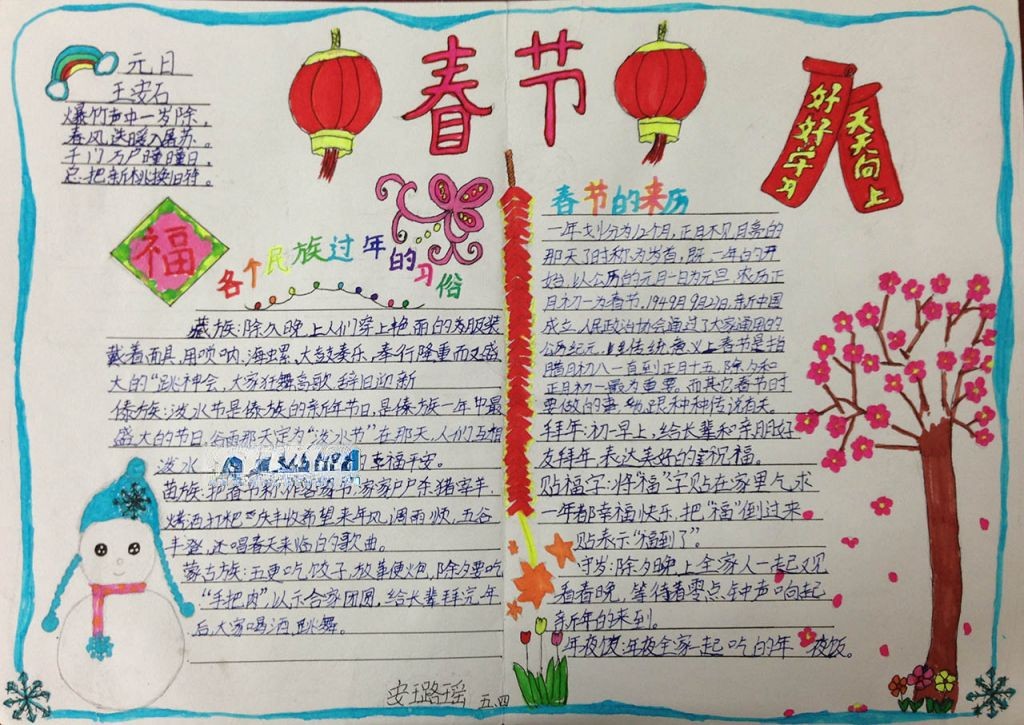 春节
元日
王安石
爆竹声中一岁除，
春风送暖入屠苏。
千门万户曈曈日，
总把新桃换旧符。
福
好好学习
天天向上
各个民族过年的习俗
藏族：除夕晚上人们穿上艳丽的衣服装
戴着面具，用唢呐，海螺，大鼓奏乐，举行隆重而又盛
大的“跳神会，大家狂舞高歌 辞旧迎新
傣族：泼水节是傣族的新年节日，是傣族一年中最
盛大的节日，谷雨那天定为“泼水节”在那天，人们互相
泼水 的幸福平安。
苗族：把春节称作客家节，家家户户杀猪宰羊，
烤酒打粑 庆丰收希望来年风调雨顺，五谷
丰登，还唱春天来临的歌曲。
蒙古族：五更吃饺子，放鞭炮，除夕要吃
“手把肉”以示合家团圆，给长辈拜完年
后，大家喝酒，跳舞。
春节的来历
一年划分为12个月，正月不见月亮的
那天子时称为岁首，既一年的开
始，以公历的元月一日为元旦 农历正
月初一为春节，1949月9月27日，新中国
成立，人民政治协会通过了大家通用的
公历纪元， 传统意义上春节是指
腊月初八一直到正月十五，除夕和
正月初一最为重要。而其它春节时
要做的事 跟种种传说有关。
拜年：初一早上，给长辈和亲朋好
友拜年，表达美好的祝福。
贴福字：将“福”字贴在家里乞求
一年都幸福快乐，把“福”倒过来
贴表示“福到了”。
守岁：除夕晚上全家人一起观见
看春晚，等待着零点钟声响起
新年的来到。
年夜饭：年夜全家一起吃的年 夜饭。
安珏路瑶 五、四